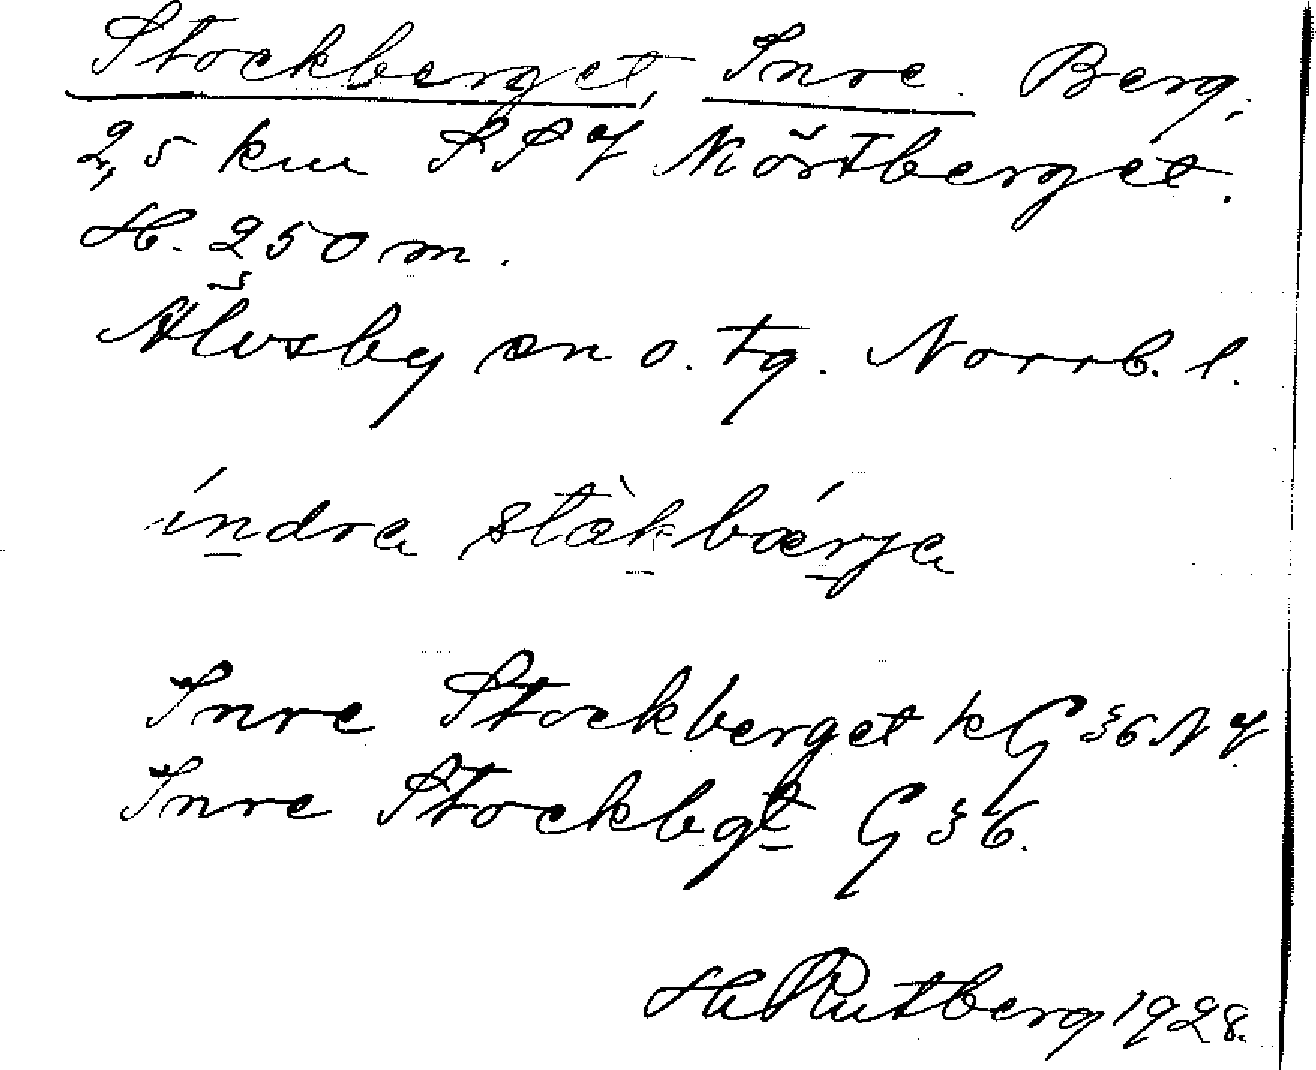 Stockberget, Inre. Berg.
2,5 km SSV Mörtberget.
H. 250 m.
Älvsby sn o. tg. Norrb. l.
índra stàkbǽrja
Inre Stockberget kG 36 NV
Inre Stockbgt G 36.
H Rutberg 1928.